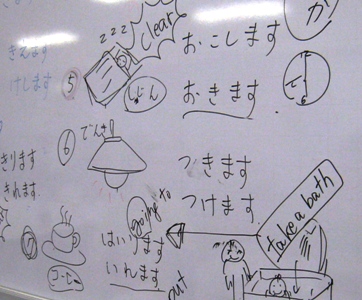 きえます
けします
zzz
clear
⑤
じん
おこします
おきます
が
で
⑥
でんき
つきます
つけます
きります
きれます
⑦
コーヒー
going to
はいります
いれます
put
take a bath